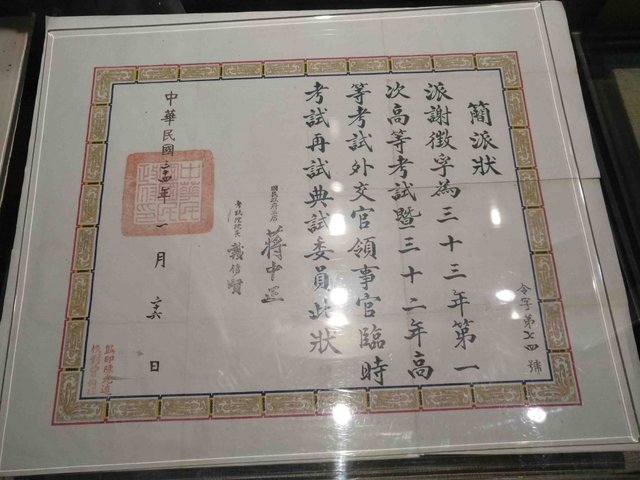 簡派狀
派謝徵孚為三十三年第一
次高等考試暨三十二年高
等考試外交官領事官臨時
考試再試典試委員此狀
國民政府主席 蔣中正
考試院院長 戴傳賢
中華民國三十四年一月二十六日
令字第七四號